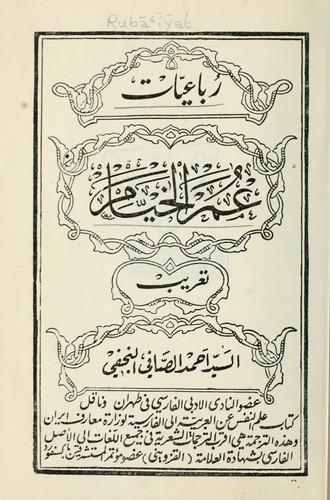 Rubā'īyāt
رباعيّات
عُمَر الخيّام
تعريب
السيد احمد الصافي النجفي
عضو النادي الادبي الفارسي في طهران وناقل
كتاب علم النفس عن العربية الى الفارسية لوزارة معارف ايران
وهذه الترجمة هي اقرب الترجمات الشعرية في جميع اللغات الى الاصل
الفارسي بشهادة العلامة (القزويني) عضو مؤتمر المستشرقين